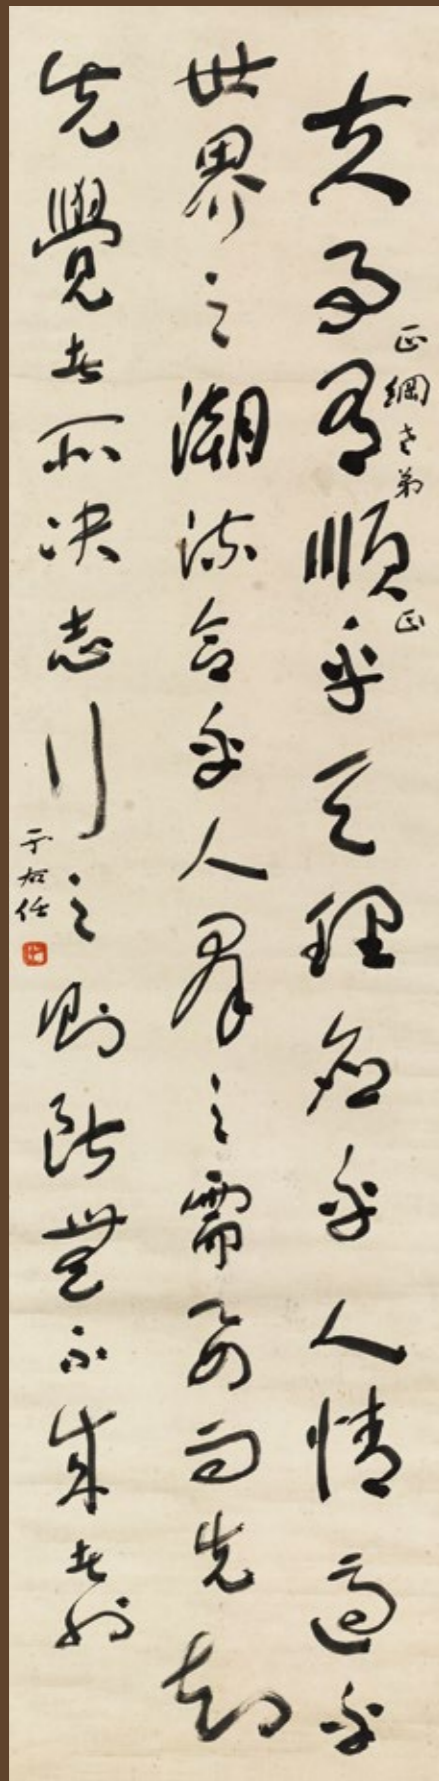 夫事有順乎天理應乎人情適乎
正綱老弟正
世界之潮流合乎人羣之需要而先知
先覺者所决志行之則斷無不成者也
于右任